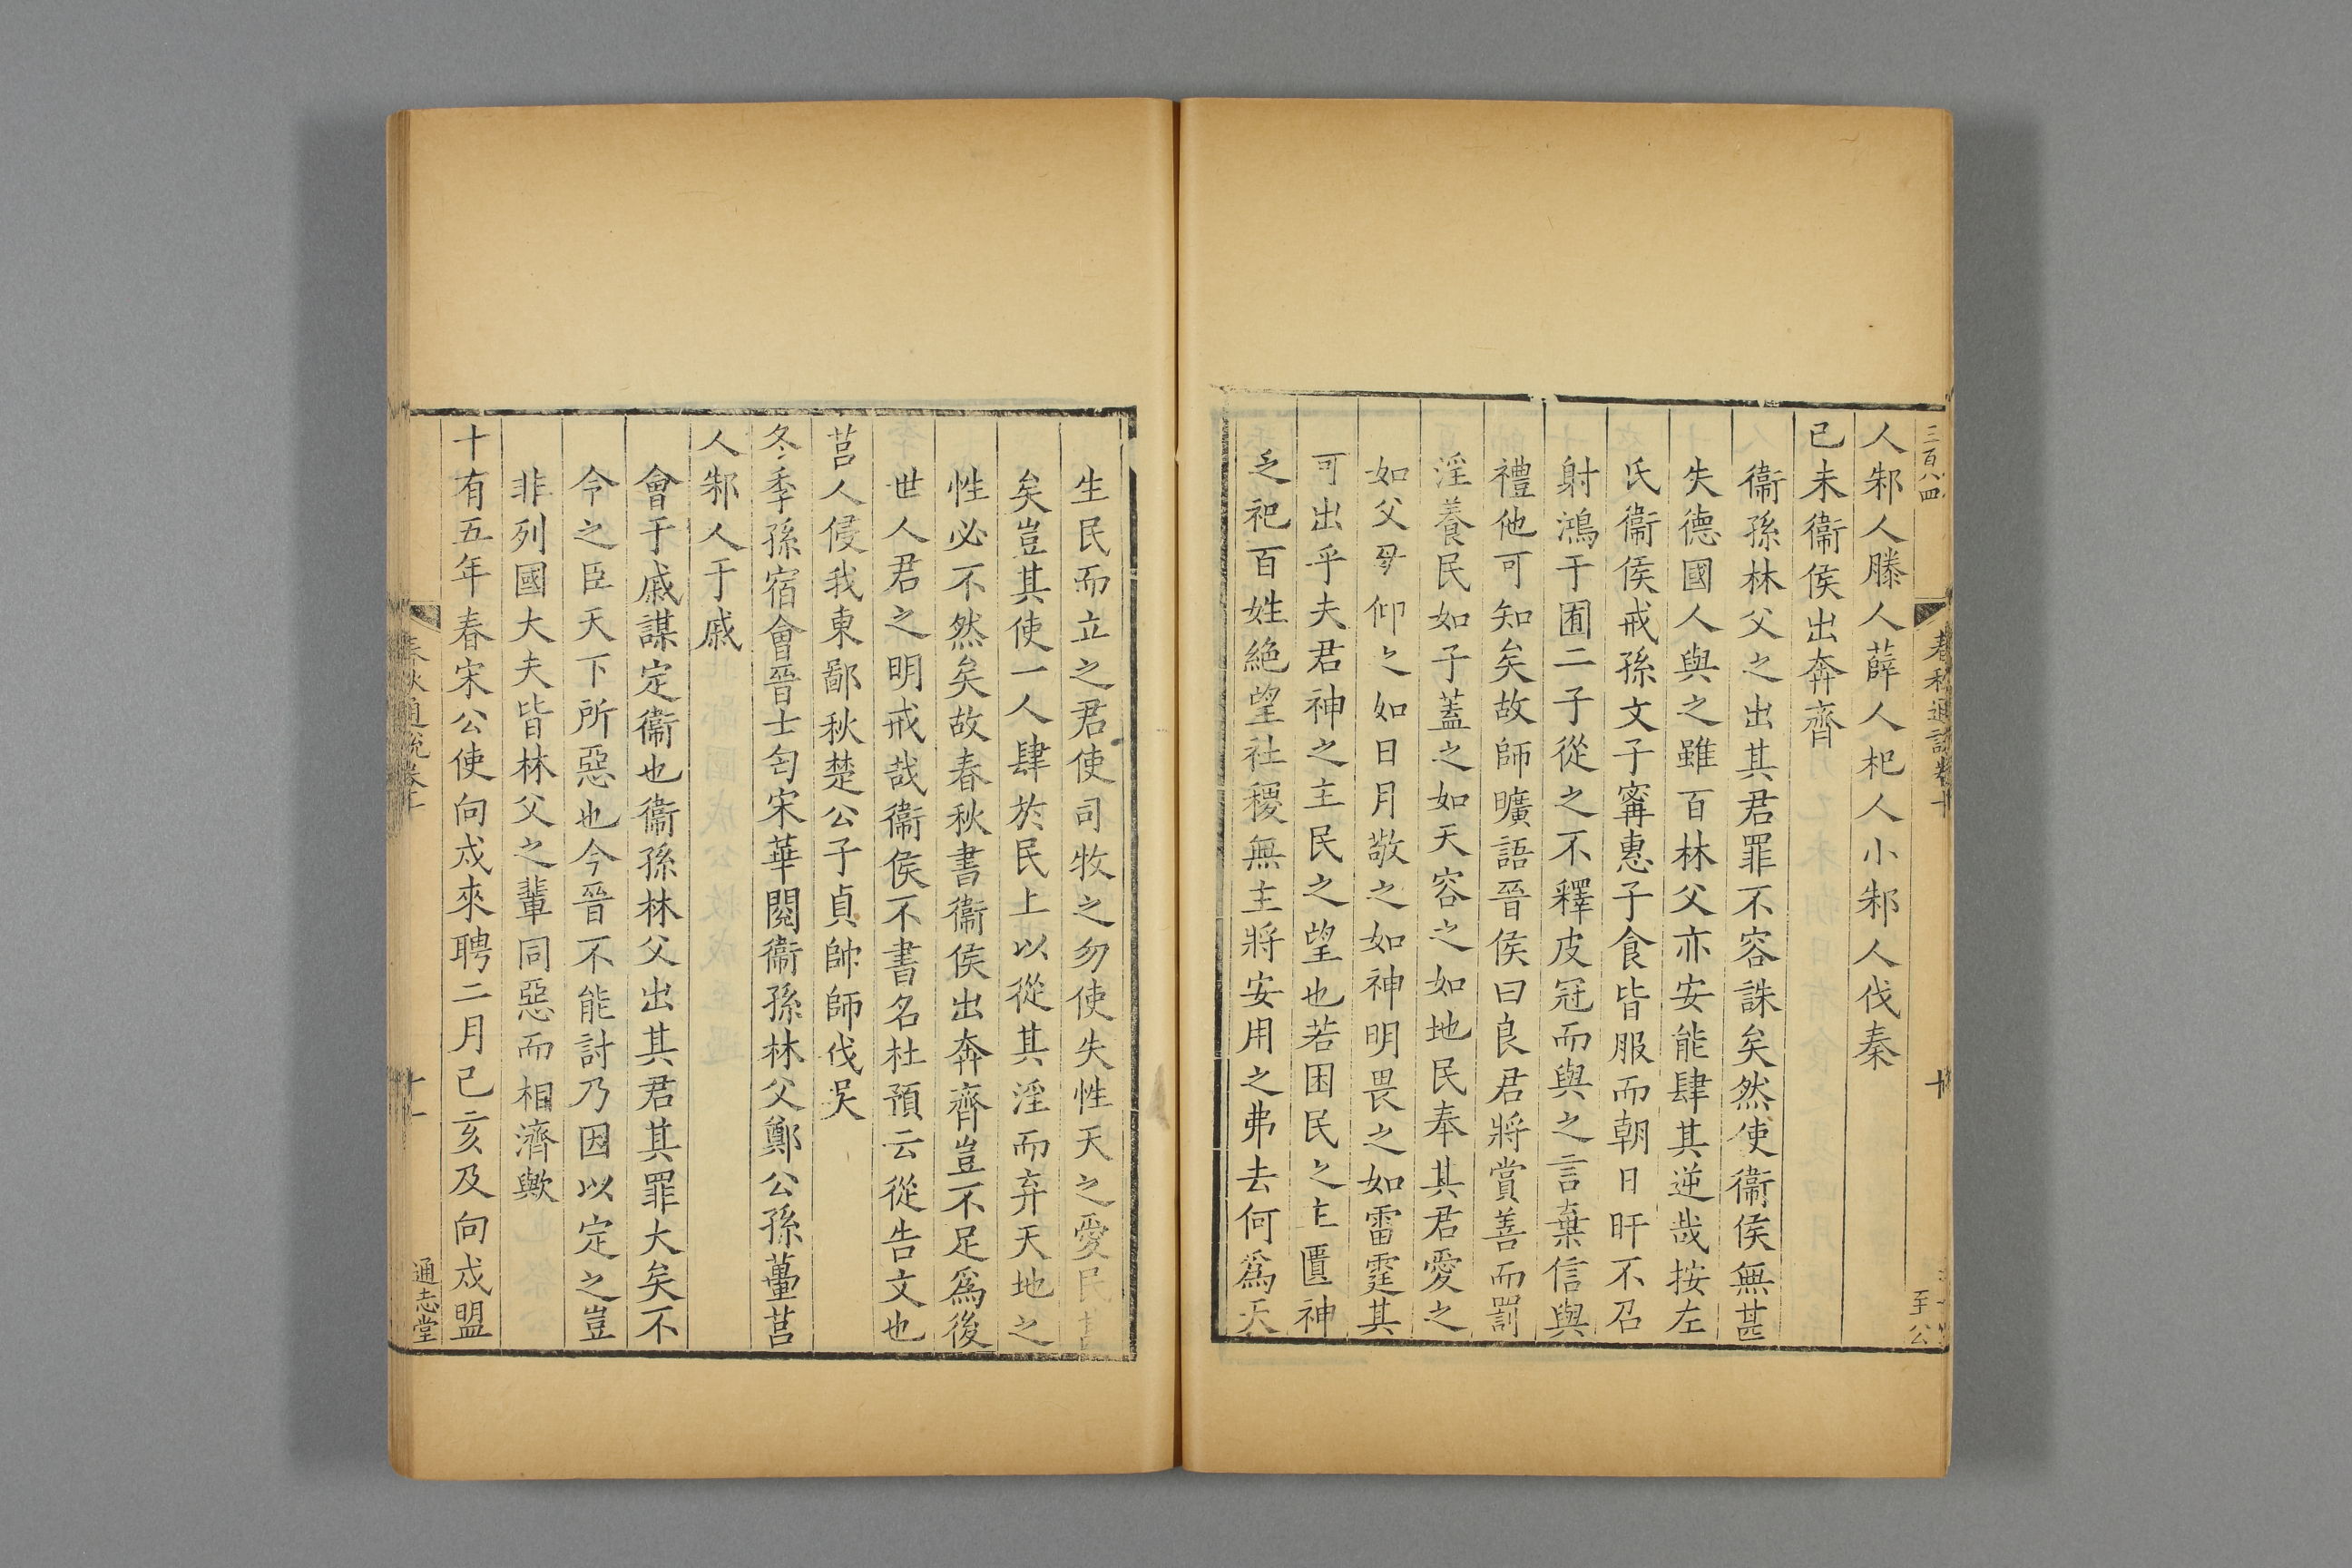 三百八四
春秋通說卷十
十
至公
人邾人滕人薛人杞人小邾人伐秦
己未衞侯出奔齊
衞孫林父之出其君罪不容誅矣然使衞侯無甚
失德國人與之雖百林父亦安能肆其逆哉按左
氏衞侯戒孫文子甯惠子食皆服而朝日旰不召
射鴻于囿二子從之不釋皮冠而與之言棄信與
禮他可知矣故師曠語晉侯曰良君將賞善而罰
淫養民如子蓋之如天容之如地民奉其君愛之
如父母仰之如日月敬之如神明畏之如雷霆其
可出乎夫君神之主民之望也若困民之主匱神
乏祀百姓絕望社稷無主將安用之弗去何爲天
生民而立之君使司牧之勿使失性天之愛民甚
矣豈其使一人肆於民上以從其淫而弃天地之
性必不然矣故春秋書衞侯出奔齊豈不足爲後
世人君之明戒哉衞侯不書名杜預云從告文也
莒人侵我東鄙秋楚公子貞帥師伐吳
冬季孫宿會晉士匄宋華閱衞孫林父鄭公孫蠆莒
人邾人于戚
會于戚謀定衞也衞孫林父出其君其罪大矣不
令之臣天下所惡也今晉不能討乃因以定之豈
非列國大夫皆林父之輩同惡而相濟歟
十有五年春宋公使向戌來聘二月己亥及向戌盟
春秋通說卷十
十一
通志堂